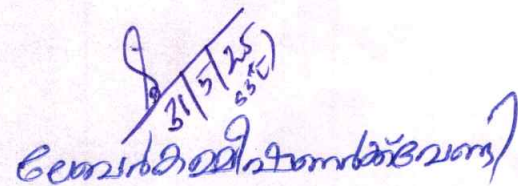 31/5/25
ലേബർകമ്മീഷണർക്ക്‌വേണ്ടി